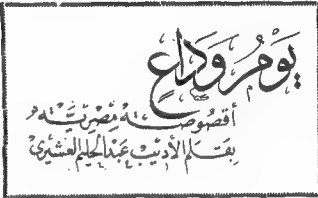 يَوْمُ وَدَاعٍ
أقصُوصَة مِصْرِيَّة
بِقَلَم الأدِيْب عَبْد الحَلِيم العشِيرِيْ